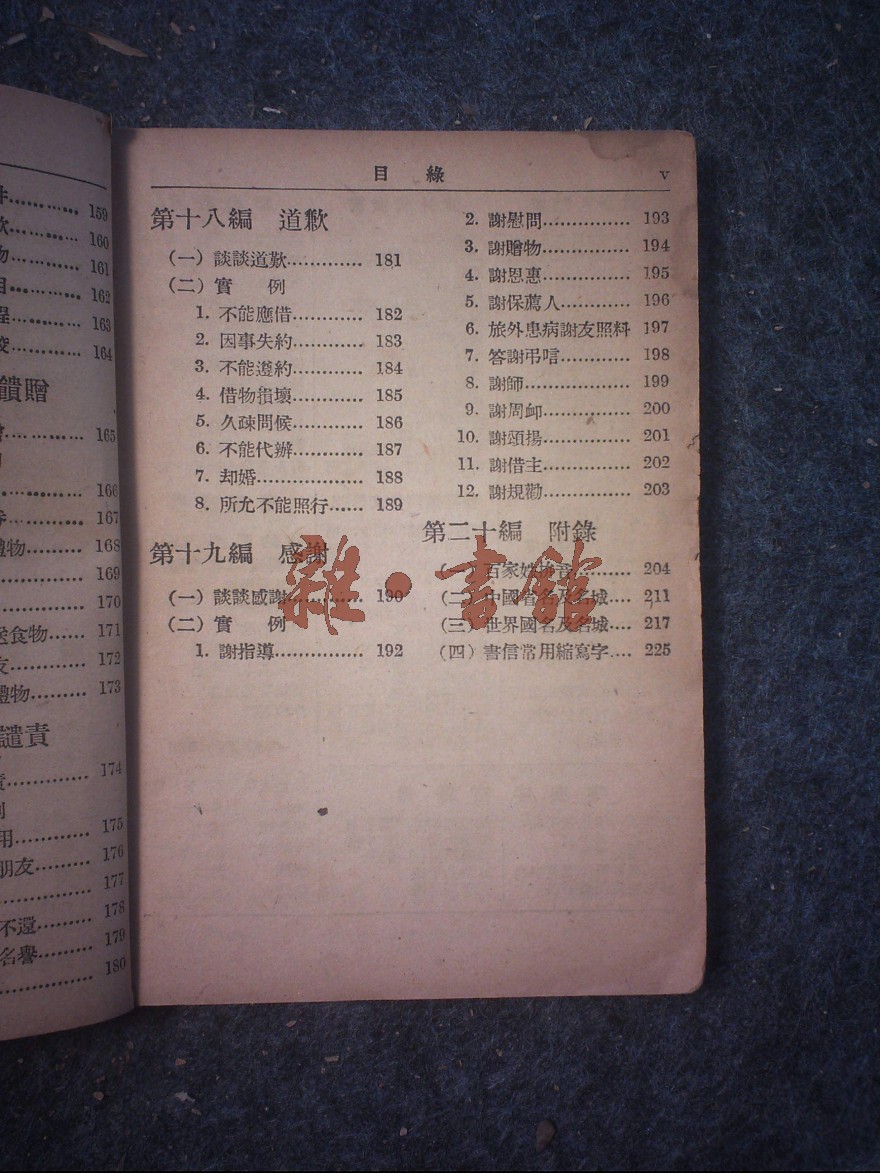 159
160
物............ 161
目............ 162
程............ 163
164
饋贈
165
166
167
禮物......... 168
169
170
送食物..... 171
友............ 172
禮物......... 173
譴責
174
用............ 175
朋友......... 176
177
不還......... 178
名譽......... 179
180
目 錄 v
第十八編 道歉
(一) 談談道歉............. 181
(二) 實 例
1. 不能應借............. 182
2. 因事失約............. 183
3. 不能遵約............. 184
4. 借物損壞............. 185
5. 久疎問候............. 186
6. 不能代辦............. 187
7. 却婚................... 188
8. 所允不能照行...... 189
第十九編 感謝
(一) 談談感謝............. 190
(二) 實 例
1. 謝指導................ 192
2. 謝慰問................ 193
3. 謝贈物................ 194
4. 謝恩惠................ 195
5. 謝保薦人............. 196
6. 旅外患病謝友照料 197
7. 答謝弔唁............. 198
8. 謝師................... 199
9. 謝周卹................ 200
10. 謝頌揚................ 201
11. 謝借主................ 202
12. 謝規勸................ 203
第二十編 附錄
(一) 百家姓拚音.......... 204
(二) 中國省名及名城.... 211
(三) 世界國名及名城.... 217
(四) 書信常用縮寫字.... 225
雜·書館